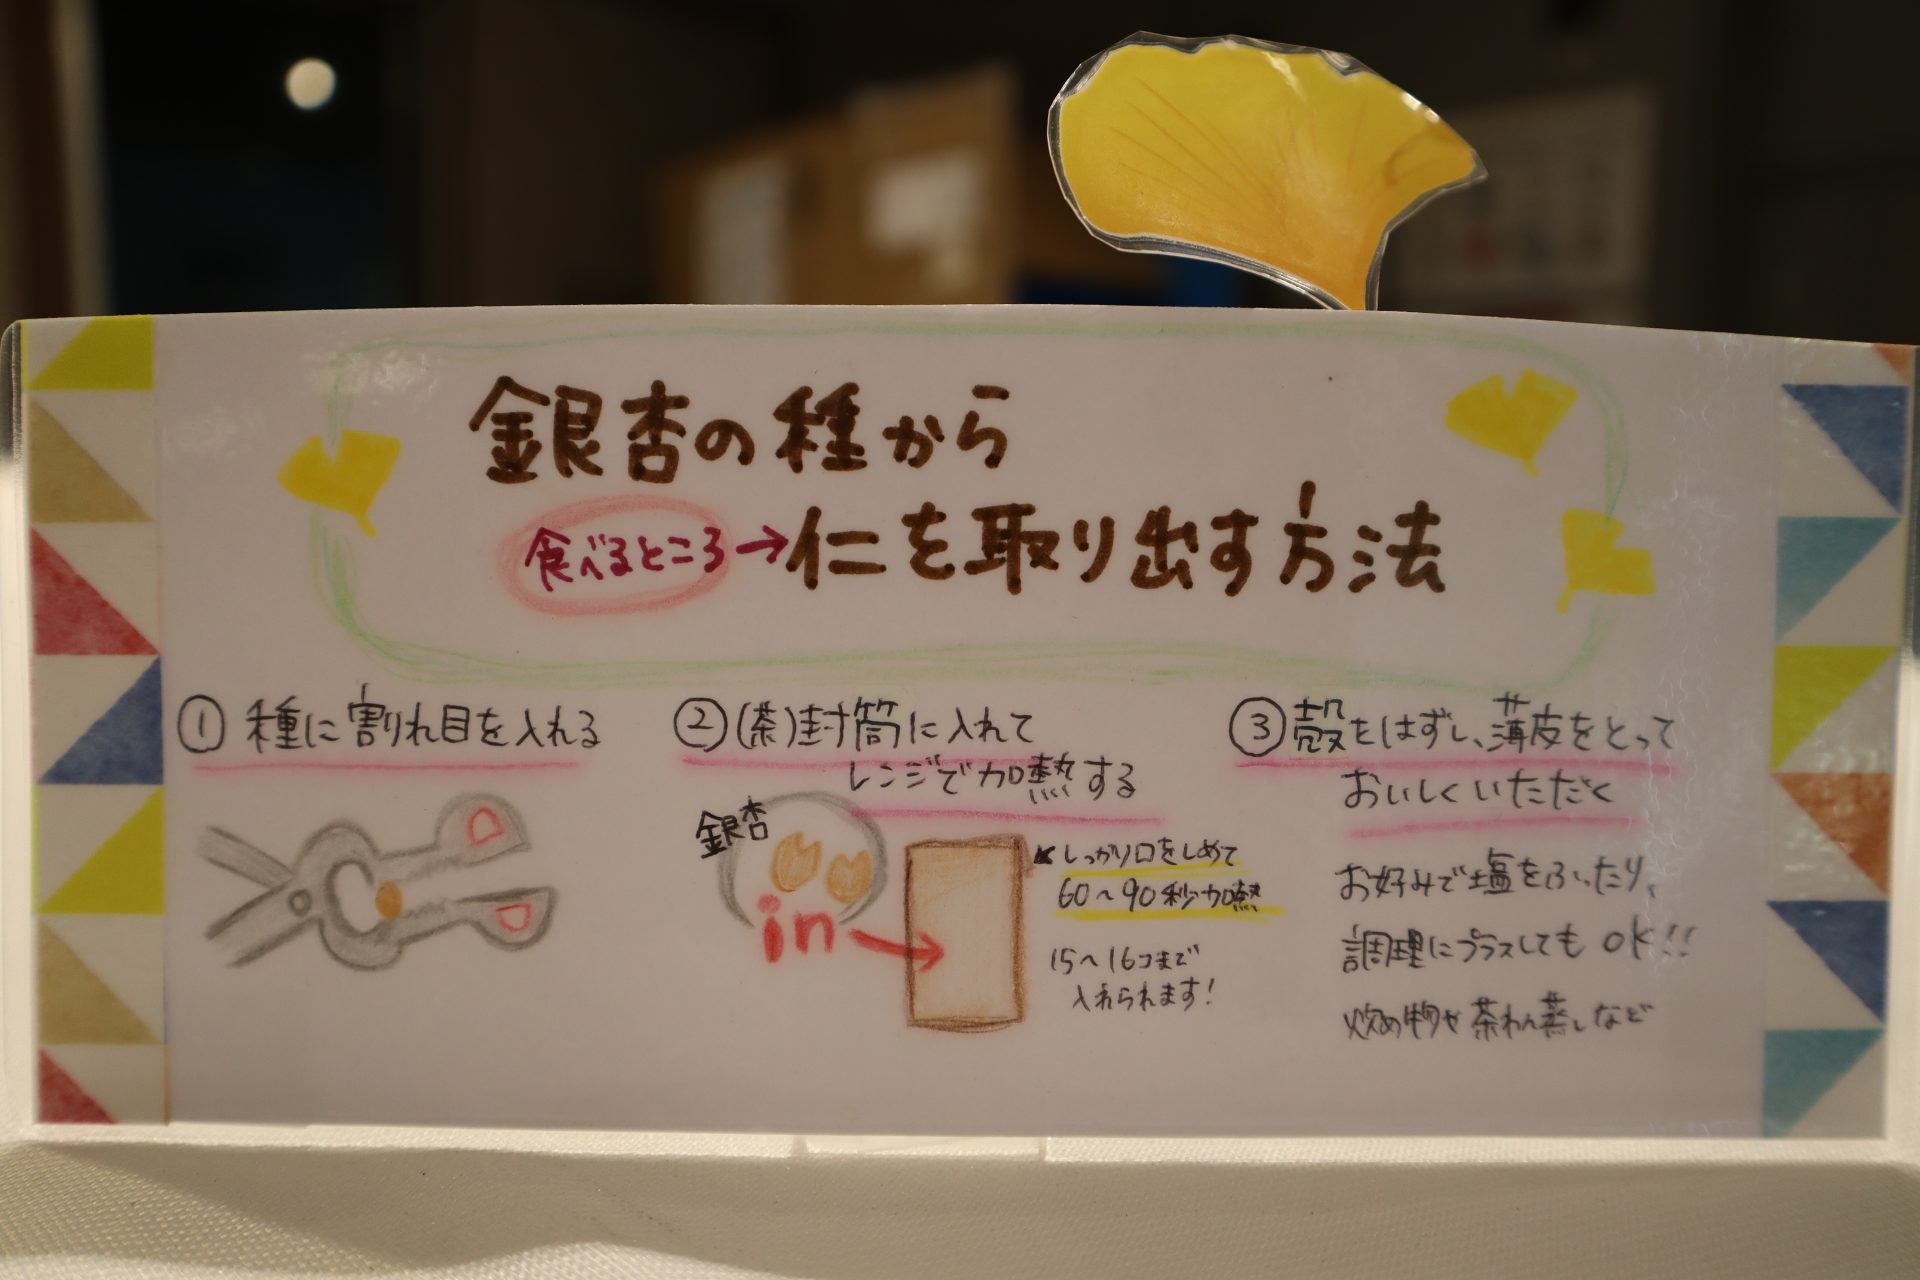 銀杏の種から
食べるところ→仁を取り出す方法
① 種に割れ目を入れる
② (茶)封筒に入れて
レンジで加熱する
銀杏
in
しっかり口をしめて
60〜90秒加熱
15〜16コまで
入れられます!
③ 殻をはずし、薄皮をとって
おいしくいただく
お好みで塩をふったり、
調理にプラスしてもOK!!
炒め物や茶わん蒸しなど